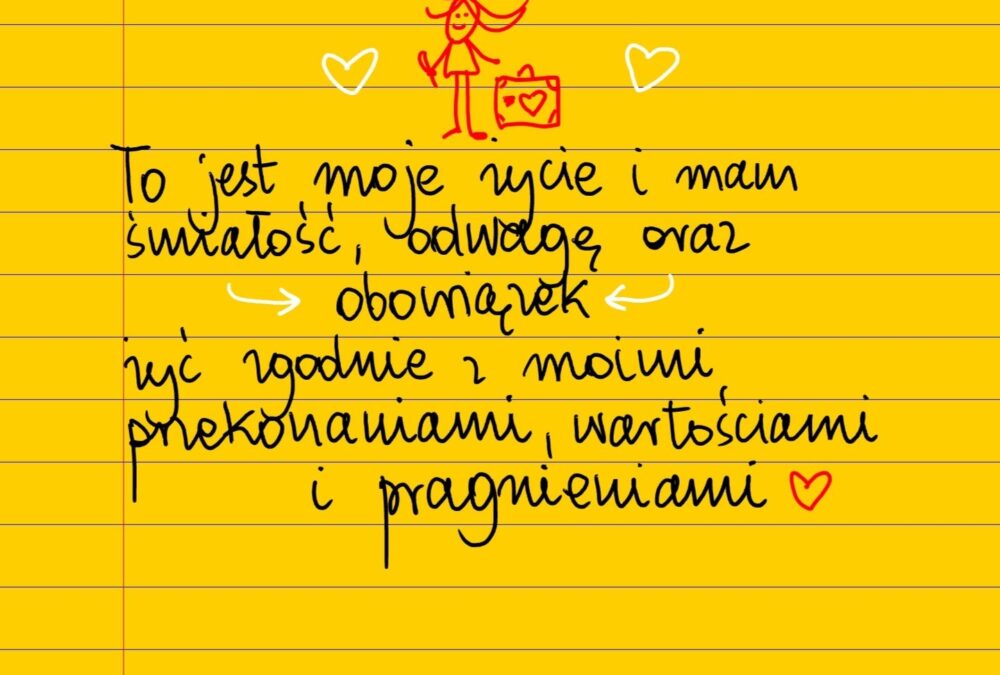 To jest moje życie i mam
śmiałość, odwagę oraz
obowiązek
żyć zgodnie z moimi
przekonaniami, wartościami
i pragnieniami